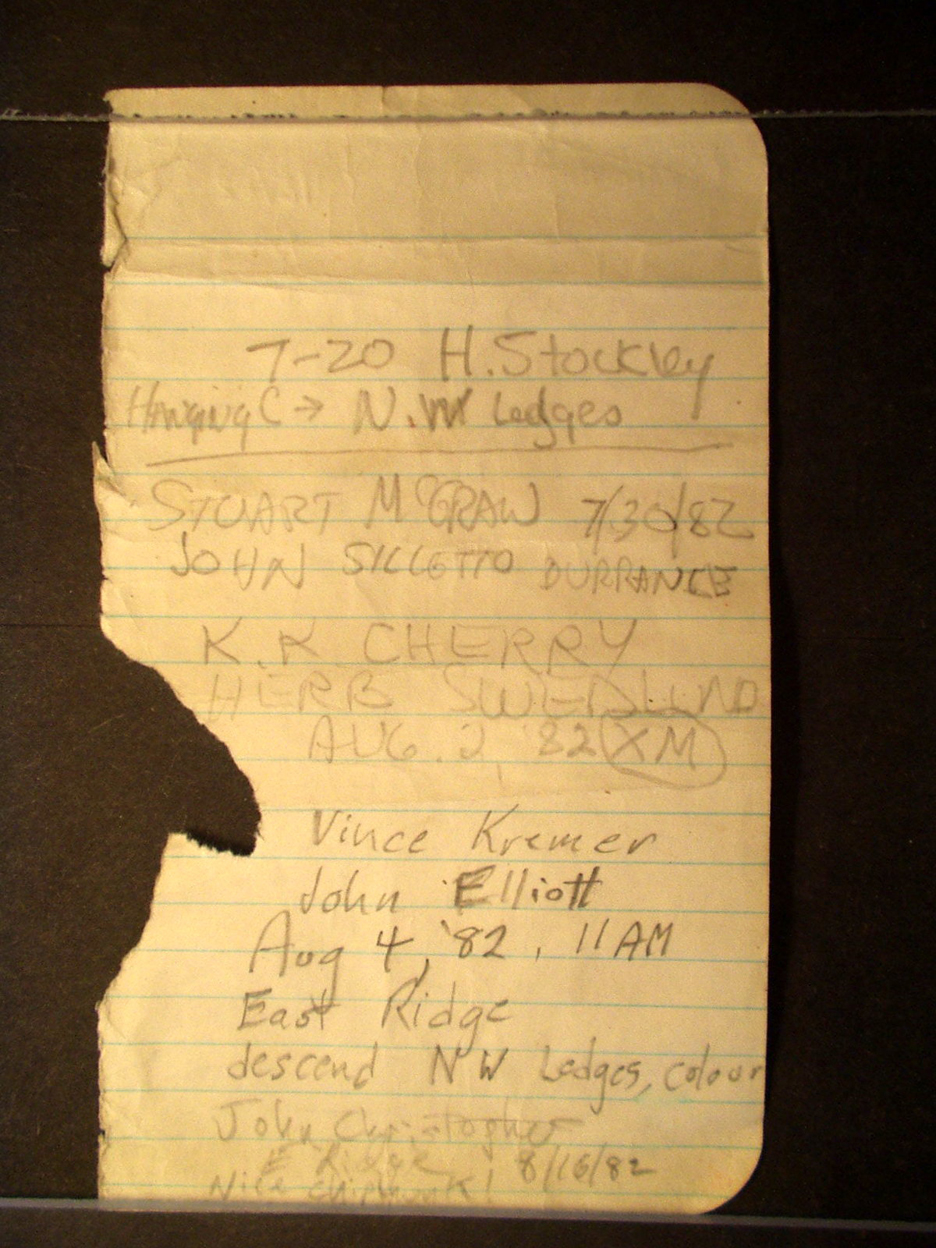 7-20 H. Stockley
Hanging C → N.W Ledges
STUART McGRAW 7/30/82
JOHN DURRANCE
K.K CHERRY
HERB SWEDLUND
AUG. 2, '82 XM
Vince Kremer
John Elliott
Aug 4, '82, 11 AM
East Ridge
descend NW Ledges, colour
John Christopher
E Ridge 8/16/82
Nice chipmunk!